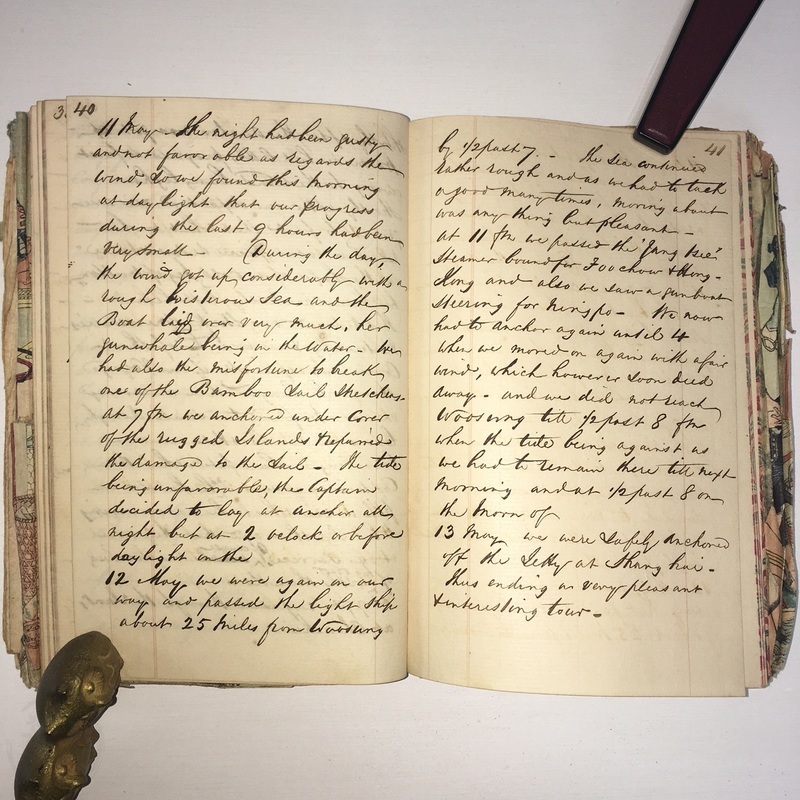 3. 40
11 May - The night had been gusty
and not favorable as regards the
wind, so we found this morning
at daylight that our progress
during the last 9 hours had been
very small - During the day,
the wind got up considerably with a
rough boisterous Sea and the
Boat laid over very much, her
gunwhale being in the water - We
had also the misfortune to break
one of the Bamboo Sail Stretchers -
at 7 pm we anchored under Cover
of the rugged Islands & repaired
the damage to the Sail - The tide
being unfavorable, the Captain
decided to lay at anchor all
night but at 2 oclock or before
daylight on the
12 May we were again on our
way and passed the light Ship
about 25 Miles from Woosung
41
by 1/2 past 7. - The Sea continued
rather rough and as we had to tack
a good many times, moving about
was any thing but pleasant -
at 11 pm we passed the "Yang tsee"
Steamer bound for Foochow & Hong-
Kong and also we saw a gunboat
steering for Ningpo - We now
had to anchor again until 4
when we moved on again with a fair
wind, which however soon died
away - and we did not reach
Woosung till 1/2 past 8 pm
when the tide being against us
we had to remain there till next
morning and at 1/2 past 8 on
the Morn of
13 May we were safely anchored
off the Jetty at Shanghai -
Thus ending a very pleasant
& interesting tour -